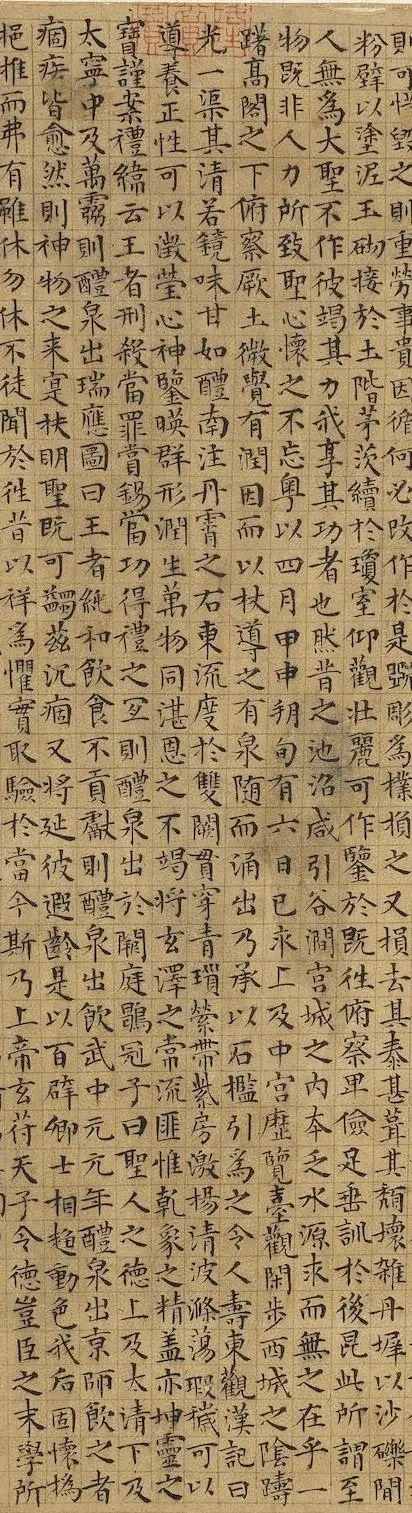 則可惜毀之則重勞事貴因循何必改作於是斲彫為樸損之又損去其泰甚葺其頹壞雜丹墀以沙礫間
粉壁以塗泥玉砌接於土階茅茨續於瓊室仰觀壯麗可作鑒於既往俯察卑儉足垂訓於後昆此所謂至
人無為大聖不作彼竭其力我享其功者也然昔之池沼咸引谷澗宮城之內本乏水源求而無之在乎一
物既非人力所致聖心懷之不忘粵以四月甲申朔旬有六日已亥上及中宮歷覽臺觀閑步西城之陰躊
躇髙閣之下俯察厥土微覺有潤因而以杖導之有泉隨而涌出乃承以石檻引為之令人壽東觀漢記曰
光一渠其清若鏡味甘如醴南注丹霄之右東流度於雙闕貫穿青瑣縈帶紫房激揚清波滌蕩瑕穢可以
導養正性可以澂瑩心神鑒暎群形潤生萬物同湛恩之不竭將玄澤之常流匪惟乾象之精盖亦坤靈之
寶謹案禮緯云王者刑殺當罪賞錫當功得禮之宜則醴泉出於闕庭鶡冠子曰聖人之德上及太清下及
太寧中及萬靈則醴泉出瑞應圖曰王者純和飲食不貢獻則醴泉出飲武中元元年醴泉出京師飲之者
痼疾皆愈然則神物之来寔扶明聖既可蠲茲沉痼又將延彼遐齡是以百辟卿士相趨動色我后固懷撝
挹推而弗有雖休勿休不徒聞於往昔以祥為懼實取驗於當今斯乃上帝玄符天子令德豈臣之末學所